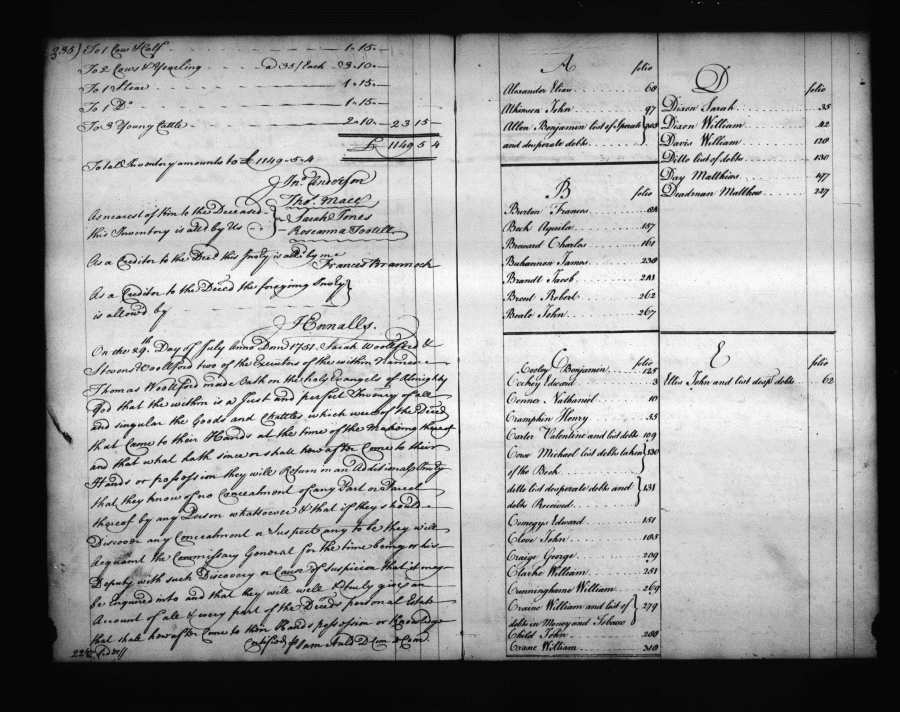 235) To 1 Cow & Calf 1..15..
To 2 Cows & Yearling a 35/ Each 3..10..
To 1 Stear 1..15..
To 1 Do 1..15..
To 3 Young Cattle 2..10.. 23 15
£ 1149 5 4
Total Inventory amounts to £ 1149..5..4
Jno. Anderson
Thos. Mace
As nearest of Kin to the Deceased
this Inventory is alld by Us
Sarah Jones
Roseanna Tootell
As a Creditor to the Decd this Invty is alld by me
Francis Brannock
As a Creditor to the Deced the foregoing Invty
is allowd by
J Ennalls.
On the 29th Day of July Anno Dom 1751 Sarah Woollford &
Stevens Woollford two of the Executors of the within Named
Thomas Woollford made Oath on the holy Evangels of Almighty
God that the within is a Just and perfect Inventry of all
and singular the Goods and Chattles which were of the Deced
that Came to their Hands at the time of the Making thereof
and that what hath since or shall hereafter Come to their
Hands or possession they will Return in an Additional Invty
that they know of no Concealment of any Part or Parcel
thereof by any Person whatsoever & that if they should
Discover any Concealment or Suspect any to be they will
Acquaint the Commissary General for the time being or his
Deputy with such Discovery or Cause of Suspicion that it may
be Enquired into and that they will well & truly give an
Account of all & every part of the Deceds personal Estate
that shall hereafter Come to their Hands possession or Knowledge
Certified p Sam Auld D Com
A folio
Alexander Elias 60
Atkinson John 97
Allen Benjamin list of Sperate
and desperate debts 303
B folio
Burton Francis
Beck Aquila 157
Breward Charles 161
Buhannon James 230
Brandt Jacob 241
Brent Robert 262
Beale John 267
C folio
Cooley Benjamin 125
Cockey Edward 3
Conner Nathaniel 10
Cramphin Henry 55
Carter Valentine and list debts 109
Crow Michael list debts taken
of the Book 130
ditto list desperate debts and
debts Received 131
Comegys Edward 151
Clove John 105
Craige George 209
Clarke William 251
Cunninghame William 269
Craine William and list of
debts in Money and Tobacco 279
Child John 288
Crane William 310
D folio
Dixon Sarah 35
Dixon William 42
Davis William 120
Ditto list of debts 130
Day Matthias 47
Deadman Matthew 227
E folio
Ellis John and list desp debts 62